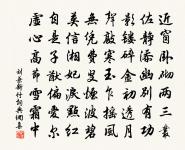 近窗臥砌兩三叢
佐靜添幽別有功
影鏤碎金初透月
聲敲寒玉乍搖風
無憑費叟煙波碧
莫信湘妃淚點紅
自是子猷偏愛爾
虛心高節雪霜中
劉兼新竹詞典網集